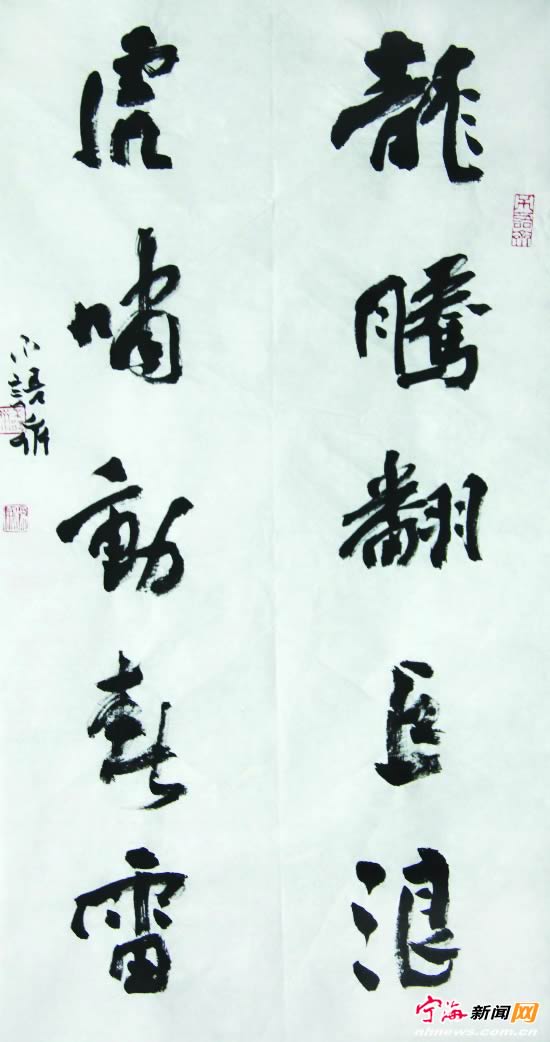 龍騰翻巨浪
虎嘯動春雷
不語
宁海新闻网
nhnews.com.cn